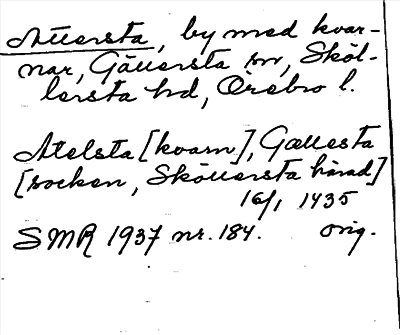 Ättersta, by med kvar-
nar, Gällersta sn, Sköl-
lersta hd, Örebro l.
Atelsta [kvarn], Gællesta
[socken, Sköllersta härad]
16/1 1435
SMR 1937 nr. 184. orig.